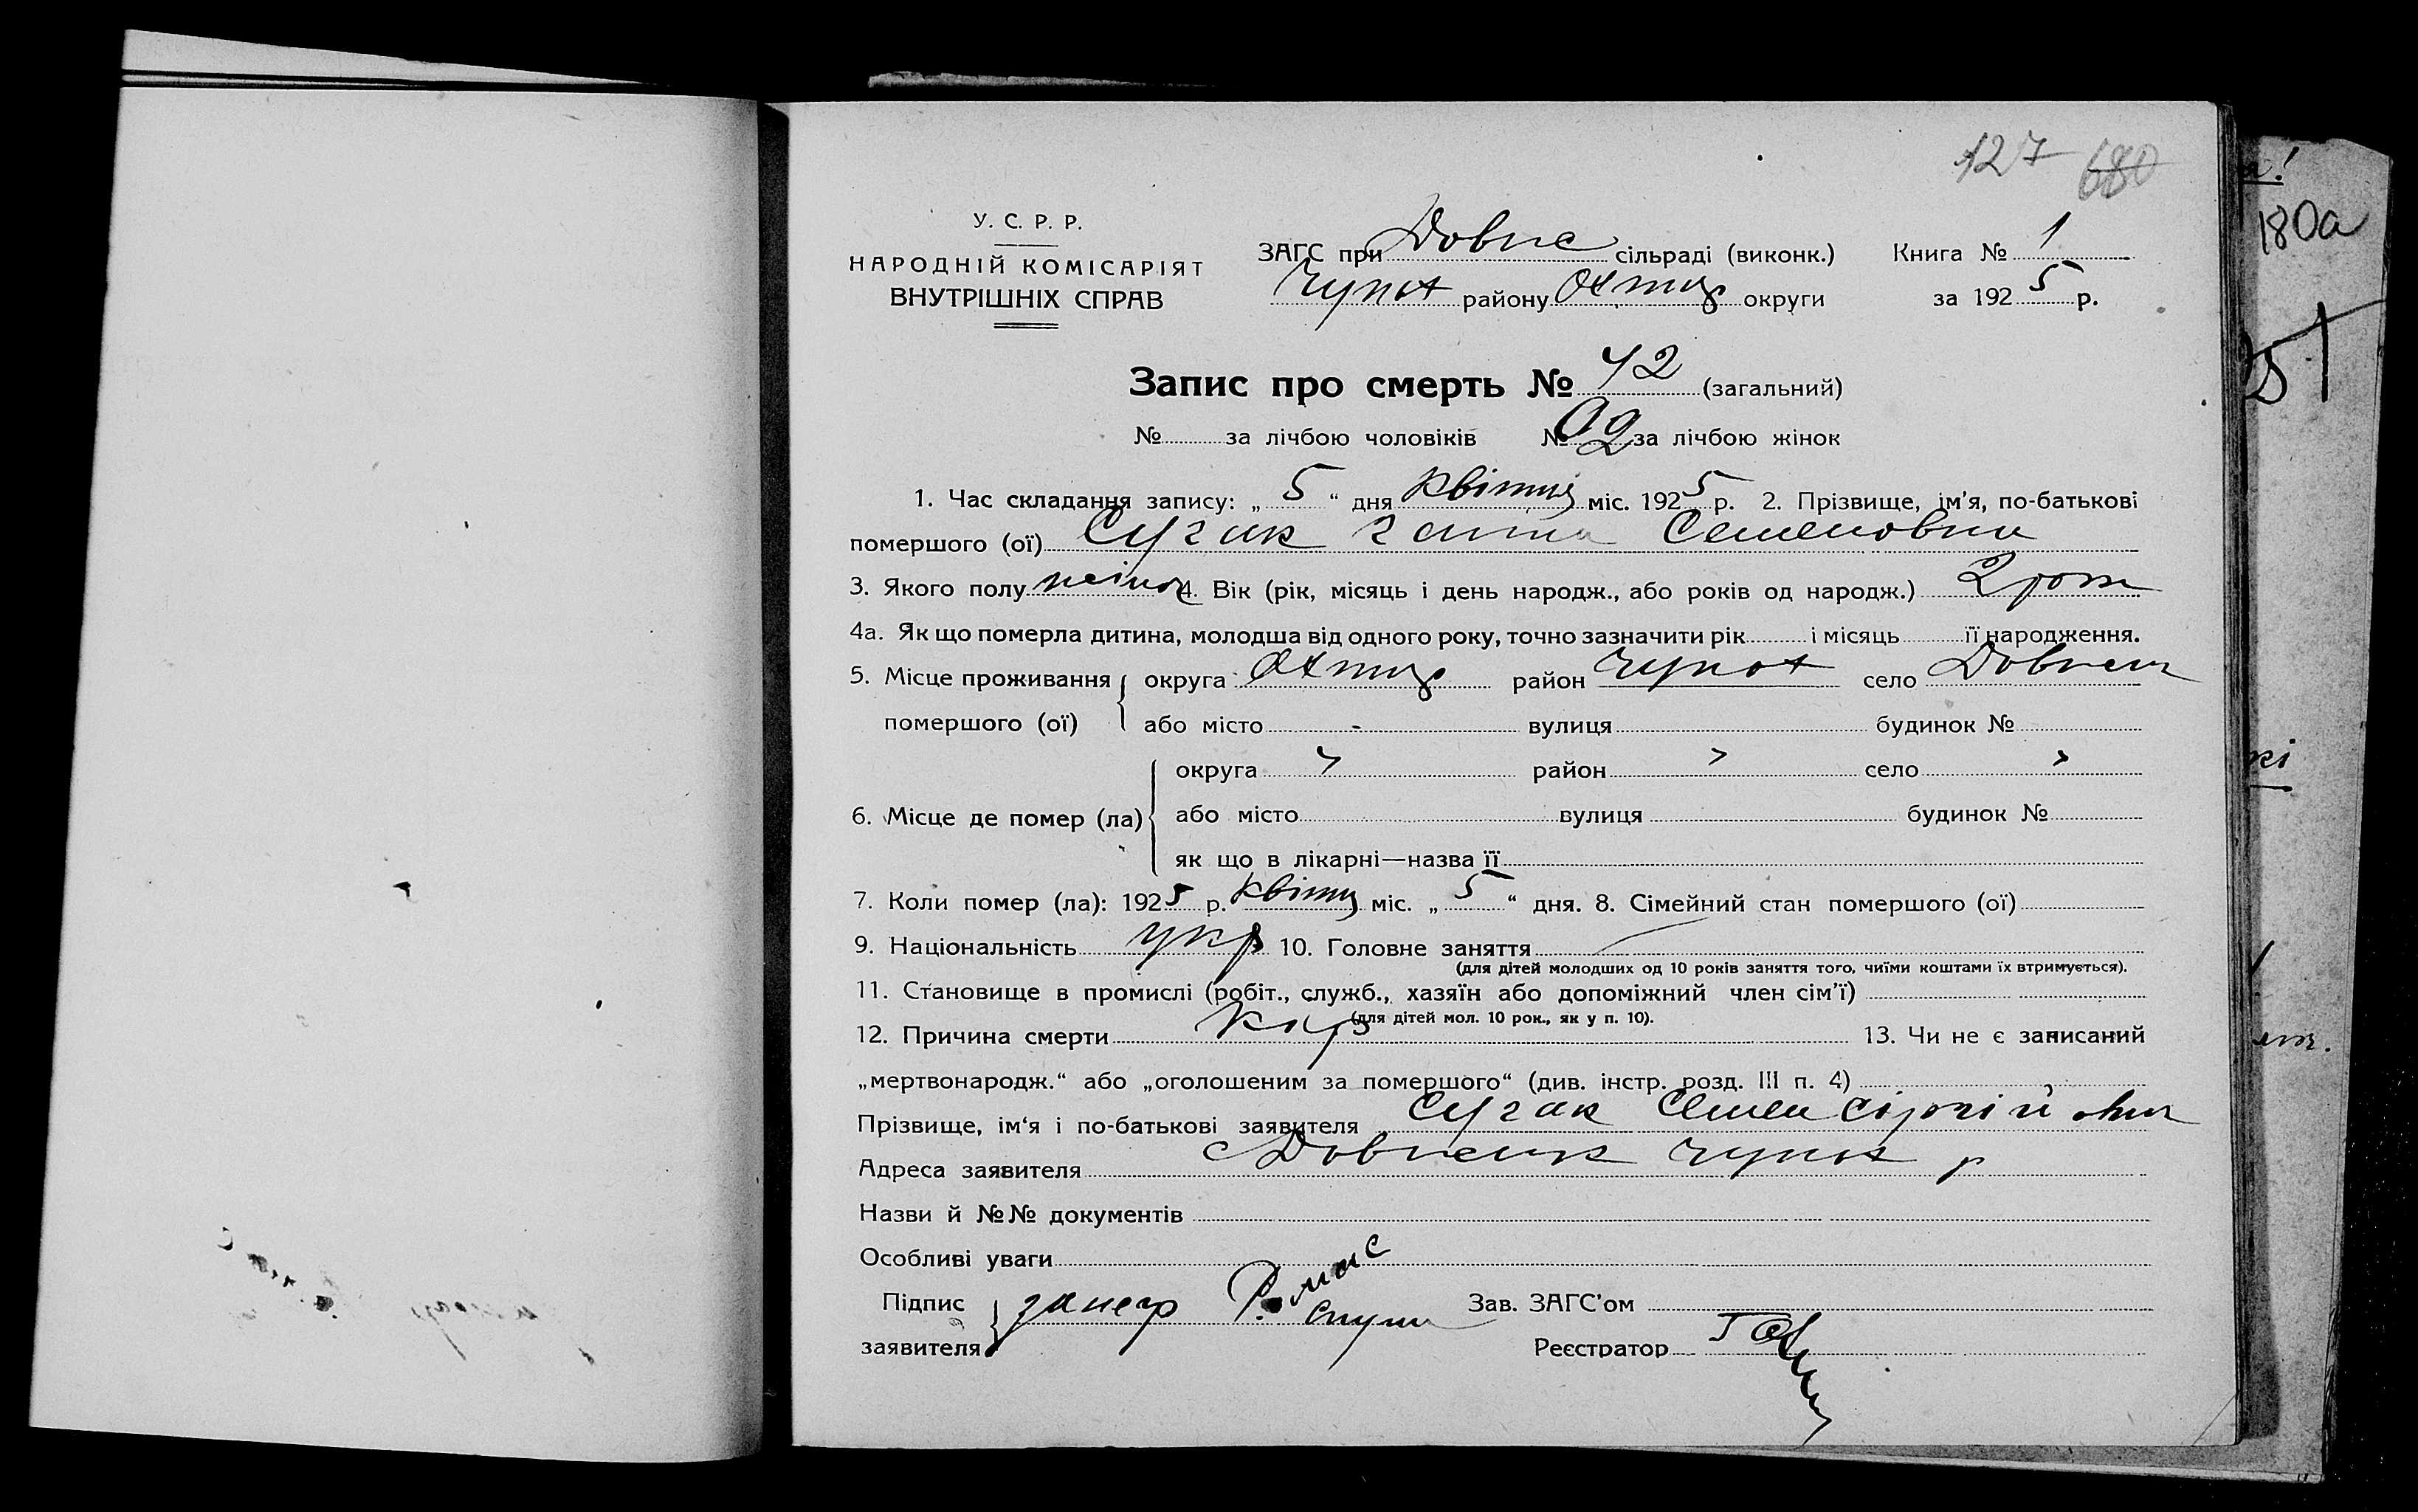 127 680
У. С. Р. Р.
НАРОДНІЙ КОМІСАРІЯТ
ВНУТРІШНІХ СПРАВ
ЗАГС при Довже сільраді (виконк.) Книга № 1
Чупах району Охтир округи за 1925 р.
Запис про смерть № 42 (загальний)
№ за лічбою чоловіків № за лічбою жінок
1. Час складання запису: „ 5 “ дня квітня міс. 1925 р. 2. Прізвище, ім'я, по-батькові
помершого (ої) Сугак Ганна Семеновна
3. Якого полу жіноч 4. Вік (рік, місяць і день народж., або років од народж.) 2 роки
4а. Як що померла дитина, молодша від одного року, точно зазначити рік і місяць її народження.
5. Місце проживання округа Охтир район Чупах село
помершого (ої) або місто - вулиця будинок №
округа район село
6. Місце де помер (ла) або місто вулиця будинок №
як що в лікарні—назва її
7. Коли помер (ла): 1925 р. квітня міс. „ 5 “ дня. 8. Сімейний стан помершого (ої)
9. Національність укр 10. Головне заняття
(для дітей молодших од 10 років заняття того, чиїми коштами їх втримується).
11. Становище в промислі (робіт., служб., хазяїн або допоміжний член сім'ї)
(для дітей мол. 10 рок., як у п. 10).
12. Причина смерти кир 13. Чи не є записаний
„мертвонародж.“ або „оголошеним за помершого“ (див. інстр. розд. III п. 4)
Прізвище, ім'я і по-батькові заявителя Сугак Семен
Адреса заявителя Чупах р
Назви й №№ документів
Особливі уваги
Підпис Зав. ЗАГС'ом
заявителя Реєстратор
180а